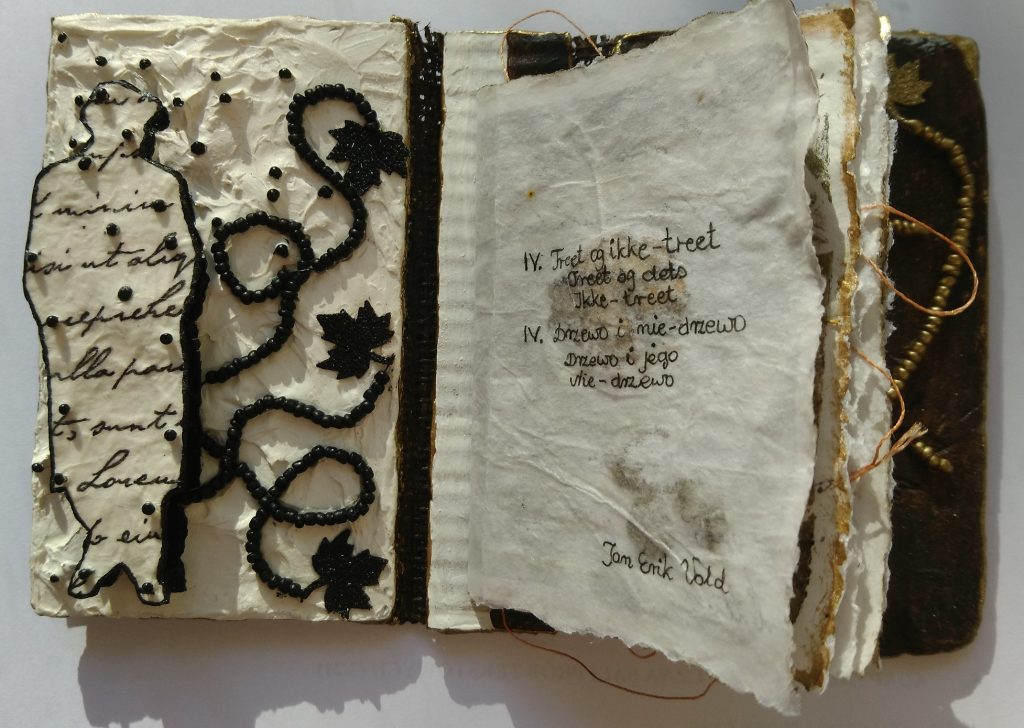 t minim
isi ut aliq
reprehe
ulla pari
t, sunt
Lorem
IV. Treet og ikke-treet
Treet og dets
Ikke-treet
IV. Drzewo i nie-drzewo
Drzewo i jego
Nie-drzewo
Jan Erik Vold